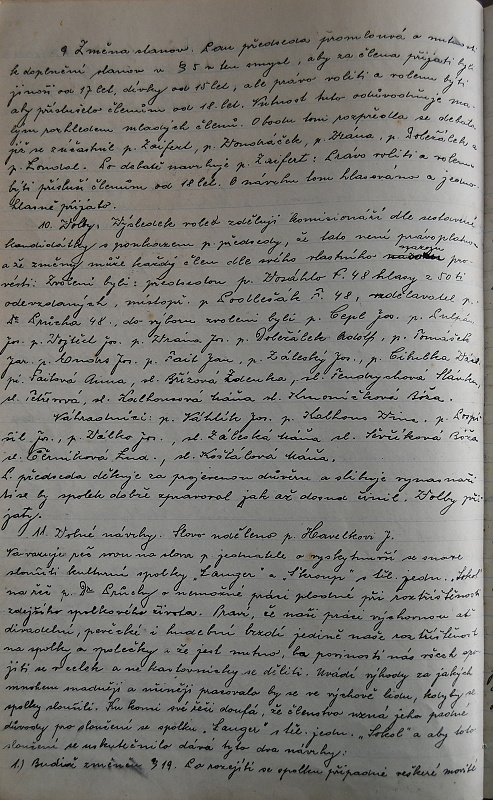 9. Změna stanov. Pan předseda promlouvá o nutnosti
k doplnění stanov v § 5 v ten smysl, aby za člena přijati byli
jinoši od 17 let, dívky od 15 let, ale právo voliti a voleni býti
aby příslušelo členům od 18 let. Nutnost tuto odůvodňuje ma-
lým pohledem mladých členů. O bodu tom rozpředla se debata
jíž se zúčastnil p. Zaifert, p. Vondráček, p. Vrána, p. Doležálek a
p. Loudal. Po debatě navrhuje p. Zaifert: Právo voliti a voleni
býti přísluší členům od 18 let. O návrhu tom hlasováno a jedno-
hlasně přijato.
10. Volby. Výsledek voleb zdělují komisionáři dle sestavené
kandidátky s poukazem p. předsedy, že tato není právoplatnou
a že změny může každý člen dle svého vlastního názoru pro-
vésti. Zvoleni byli: předsedou p. Dosáhlo F. 48 hlasy z 50 ti
odevzdaných, místopř. p. Podlešák F. 48, vzdělavatel p.
Dr. Průcha 48, do výboru zvoleni byli p. Cepl Jos. p.
Jos. p. Vojtěch Jos. p. Vrána Jos. p. Doležálek Adolf, p. Tomášek
Jar. p. Jos. p. Fait Jan, p. Záleský Jos., p. Cibulka
pí. Faitova Anna, sl. Břízova Zdenka, sl. Fendrychová Slávka,
sl. Petrová, sl. Kalhousová Máňa, sl. Krunčíková Róza.
Náhradníci: p. Váhlík Jos. p. Kalhous p. Pospí-
šil Jos., p. Válko Jos., sl. Záleská Máňa sl. Ševčíková Róza
sl. Černíková Lud., sl. Košťálová Máňa.
P. předseda děkuje za projevenou důvěru a slibuje vynasnaži-
ti se by spolek dobře spravoval jak až dosud činil. Volby při-
jaty.
11. Volné návrhy. Slovo uděleno p. Havelkovi J.
Navazuje řeč svou na slova p. jednatele o vyskytnuvší se snaze
sloučiti kulturní spolky „Langer“ a „Škroup“ s těl. jedn. „Sokol“
na řeč p. Dr. Průchy o nemožné práci plodné při roztříštěnosti
zdejšího spolkového života. Praví, že naši práci výchovnou ať
divadelní, pěveckou i hudební brzdí jedině naše roztříštěnost
na spolky a společky a že jest nutno, ba povinností nás všech spo-
jiti se v celek a ne kastovnicky se děliti. Uvádí výhody za jakých
mnohem snadněji a účinněji pracovalo by se ve výchově lidu, kdyby se
spolky sloučily. Ku konci své řeči doufá, že členstvo uzná jeho padné
důvody pro sloučení se spolku „Langer“ s těl. jedn. „Sokol“ a aby toto
sloučení se uskutečnilo dává tyto dva návrhy:
1.) Budiž změněn § 19. Po rozejití se spolku případné veškeré movité